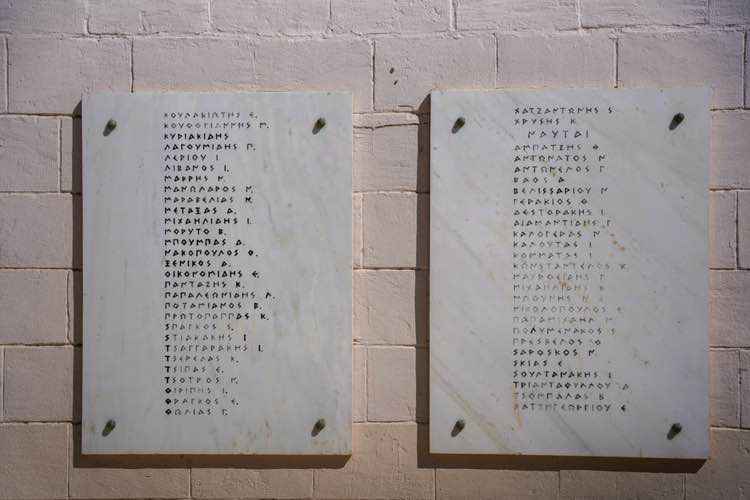 ΚΟΥΛΑΚΙΩΤΗΣ Ε.
ΚΟΥΦΟΓΙΑΝΝΗΣ Μ.
ΚΥΡΙΑΚΙΔΗΣ
ΛΑΓΟΥΜΙΔΗΣ Γ.
ΛΕΡΙΟΥ Ι
ΛΙΒΑΝΟΣ Ι.
ΜΑΚΡΗΣ Ν.
ΜΑΝΩΛΑΡΟΣ Μ.
ΜΑΡΑΒΕΛΙΑΣ Μ.
ΜΕΤΑΞΑΣ Δ.
ΜΙΧΑΗΛΙΔΗΣ Ι.
ΜΟΡΥΤΟ Β.
ΜΠΟΥΜΠΑΣ Δ.
ΝΑΚΟΠΟΥΛΟΣ Θ.
ΞΕΝΙΚΟΣ Δ.
ΟΙΚΟΝΟΜΙΔΗΣ Θ.
ΠΑΝΤΑΖΗΣ Κ.
ΠΑΠΑΛΕΩΝΙΔΗΣ Α.
ΠΟΤΑΜΙΑΝΟΣ Β.
ΠΡΩΤΟΠΑΠΠΑΣ Κ.
SΠΑΓΚΟΣ S.
SΤΙΑΚΑΚΗΣ Ι
ΤΣΑΓΓΑΡΑΚΗΣ Ι.
ΤΣΕΡΕΛΑΣ Κ.
ΤΣΙΠΑΣ Ε.
ΤΣΟΤΡΟΣ Μ.
ΦΙΡΙΠΗΣ Ι.
ΦΡΑΓΚΟΣ Θ.
ΦΩΛΙΑΣ Γ.
ΧΑΤΖΑΝΤΩΝΗΣ S
ΧΡΥΣΗΣ Κ
ΝΑΥΤΑΙ
ΑΜΠΑΤΖΗΣ Θ
ΑΝΤΩΝΑΤΟΣ Ν
ΑΝΤΩΝΕΛΟΣ Γ
ΒΑΟΣ Α
ΒΕΛΙΣΣΑΡΙΟΥ Ν
ΓΕΡΑΚΙΟΣ Θ
ΔΕΣΤΟΡΑΚΗΣ Ι
ΔΙΑΜΑΝΤΙΔΗΣ Γ
ΚΑΛΟΓΕΡΑΣ Ν
ΚΑΛΟΥΤΑΣ Ι
ΚΟΜΜΑΤΑΣ Ι
ΚΩΝΣΤΑΝΤΕΛΟΣ Κ
ΜΑΥΡΟΕΙΔΗΣ Γ
ΜΙΧΑΗΛΙΔΗΣ
ΜΠΟΥΝΗΣ Ν
ΝΙΚΟΛΟΠΟΥΛΟΣ
ΠΑΠΑΜΙΧΑΗΛ Ν
ΠΟΛΥΜΕΝΑΚΟΣ
ΠΡΕΣΒΕΛΟΣ
SΑΡΟSΚΟΣ Ν
SΚΙΑΣ Ε
SΟΥΛΤΑΝΑΚΗΣ Ι
ΤΡΙΑΝΤΑΦΥΛΛΟΥ Δ
ΤΣΟΜΠΑΛΑΣ Β
ΧΑΤΖΗΓΕΩΡΓΙΟΥ Ε